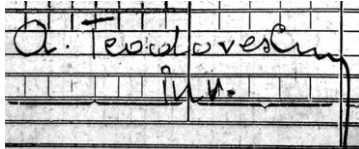 A. Teodorescu
inv.